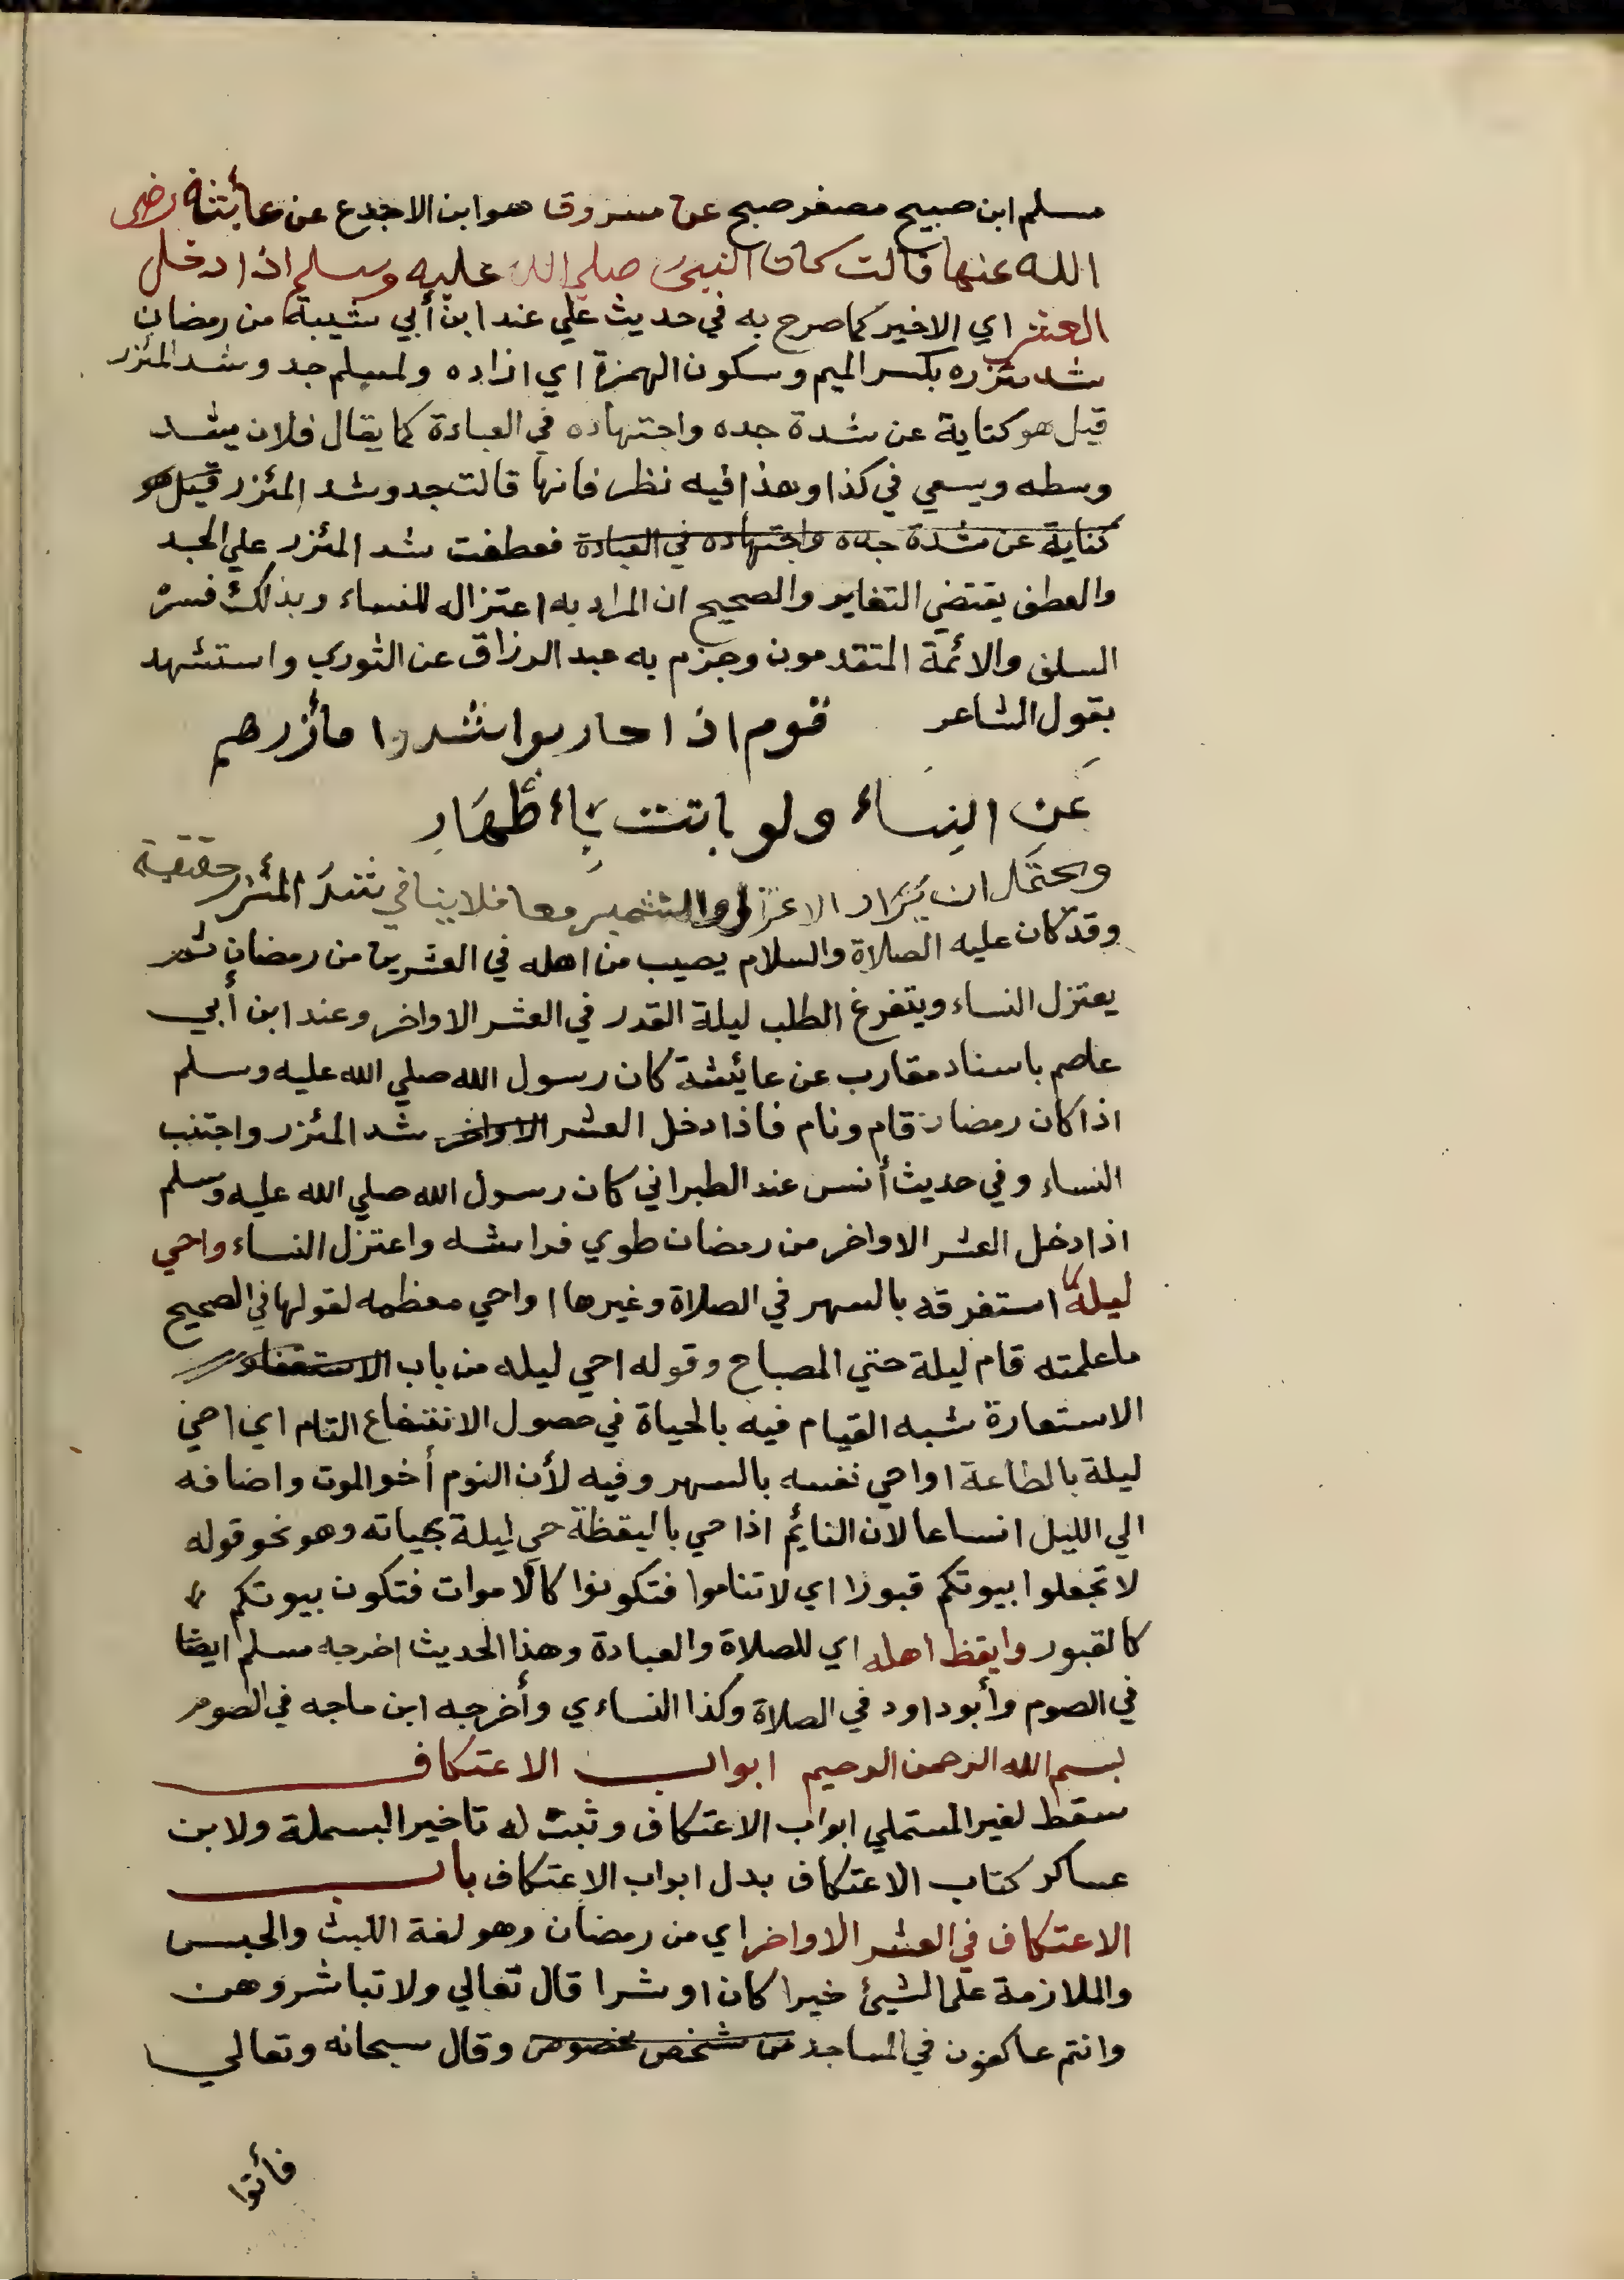 مسلم ابن صبيح مصغر صبح عن مسروق هو ابن الاجدع عن عائشة رضى
الله عنها قالت كان النبى صلى الله عليه وسلم اذا دخل
العشر اي الاخير كما صرح به في حديث علي عند ابن أبي شيبة من رمضان
شد مئزره بكسر الميم وسكون الهمزة اي ازاره ولمسلم جد وشد المئزر
قيل هو كناية عن شدة جده واجتهاده في العبادة كما يقال فلان يشد
وسطه ويسعي في كذا وهذا فيه نظر فانها قالت جد وشد المئزر قيل هو
كناية عن شدة جده واجتهاده في العبادة فعطفت شد المئزر علي الجد
والعطف يقتضي التغاير والصحيح ان المراد به اعتزاله للنساء وبذلك فسره
السلف والائمة المتقدمون وجزم به عبد الرزاق عن الثوري واستشهد
بقول الشاعر قوم اذا حاربوا شدوا مأزرهم
عن النساء ولو باتت باأطهار
ويحتمل ان يراد الاعتزال والتشمير معا فلا ينافي شد المئزر حقيقية
وقد كان عليه الصلاة والسلام يصيب من اهله في العشرين من رمضان ثم
يعتزل النساء ويتفرغ الطلب ليلة القدر في العشر الاواخر وعند ابن أبي
عاصم باسناد مقارب عن عائشة كان رسول الله صلي الله عليه وسلم
اذا كان رمضان قام ونام فاذا دخل العشر الاواخر شد المئزر واجتنب
النساء وفي حديث أنس عند الطبراني كان رسول الله صلي الله عليه وسلم
اذا دخل العشر الاواخر من رمضان طوي فراشه واعتزل النساء واحي
ليله استغرقه بالسهر في الصلاة وغيرها او احي معظمه لقولها في الصحيح
ما علمته قام ليلة حتي المصباح وقوله احي ليله من باب
الاستعارة شبه القيام فيه بالحياة في حصول الانتفاع التام اي احي
ليلة بالطاعة او احي نفسه بالسهر وفيه لأن النوم أخو الموت واضافه
الي الليل اتساعا لان النائم اذا حي باليقظة حي ليلة بحياته وهو نحو قوله
لا تجعلوا بيوتكم قبورا اي لا تناموا فتكونوا كالاموات فتكون بيوتكم
كالقبور وايقظ اهله اي للصلاة والعبادة وهذا الحديث اخرجه مسلم ايضا
في الصوم وأبو داود في الصلاة وكذا النساءي وأخرجه ابن ماجه في الصوم
بسم الله الرحمن الرحيم ابواب الاعتكاف
سقط لغير المستملي ابواب الاعتكاف وثبت له تاخير البسملة ولابن
عساكر كتاب الاعتكاف بدل ابواب الاعتكاف باب
الاعتكاف في العشر الاواخر اي من رمضان وهو لغة اللبث والحبس
والملازمة على الشيئ خيرا كان او شرا قال تعالي ولا تباشروهن
وانتم عاكفون في المساجد من شخص مخصوص وقال سبحانه وتعالي
فأتوا